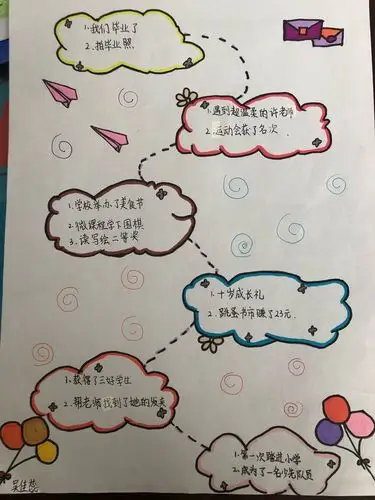 1.我们毕业了
2.拍毕业照
1.遇到超温柔的许老师
2.运动会获了名次.
1.学校举办了美食节
2.微课程学下围棋
3.读写绘二等奖
1.十岁成长礼
2.跳蚤书市赚了23元.
1.获得了三好学生
2.帮老师找到了她的发夹
1.第一次踏进小学
2.成为了一名少先队员
吴佳蕊